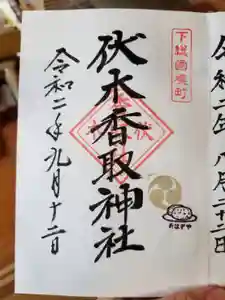 下総国境町
伏木香取神社
令和二年九月十二日
おはぎや
令和二年八月二十二日